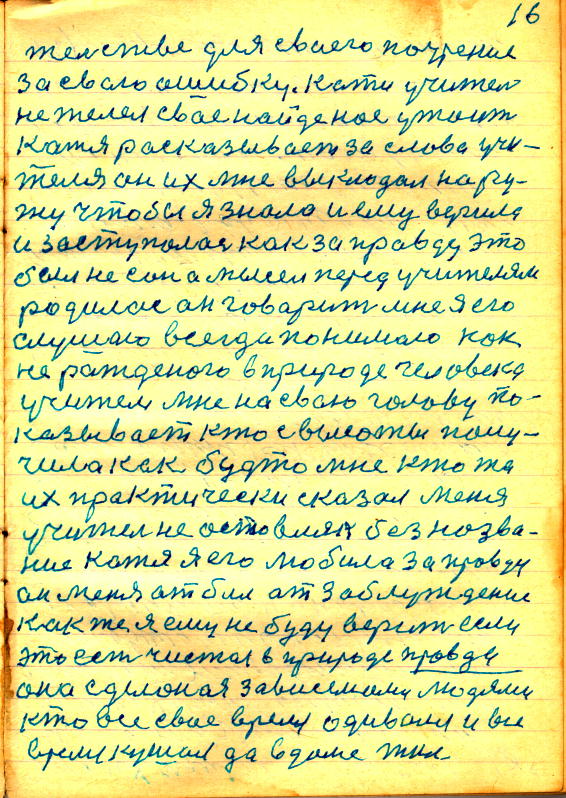 16
тельстве для своего почрения
за свою ошибку. Кати учител
не желел свое найденое утоит
Катя расказывает за слова учи-
теля он их мне выклодал нару-
жу чтобы я знала и ему верила
и заступолас как за правду это
был не сон а мысел перед учителям
родилас он говарит мне я его
слушаю всегда понимаю как
не ражденого в природе человека
учител мне на сваю голову по-
казывает кто с высоты полу-
чила как будто мне кто то
их практически сказал меня
учител не оставлял без назва-
ние Катя я его любила за правду
он меня отбил от заблуждение
как же я ему не буду верит если
это ест чистая в природе правда
она сделоная зависемами людями
кто все свае время одивался и все
время кушал да в доме жил